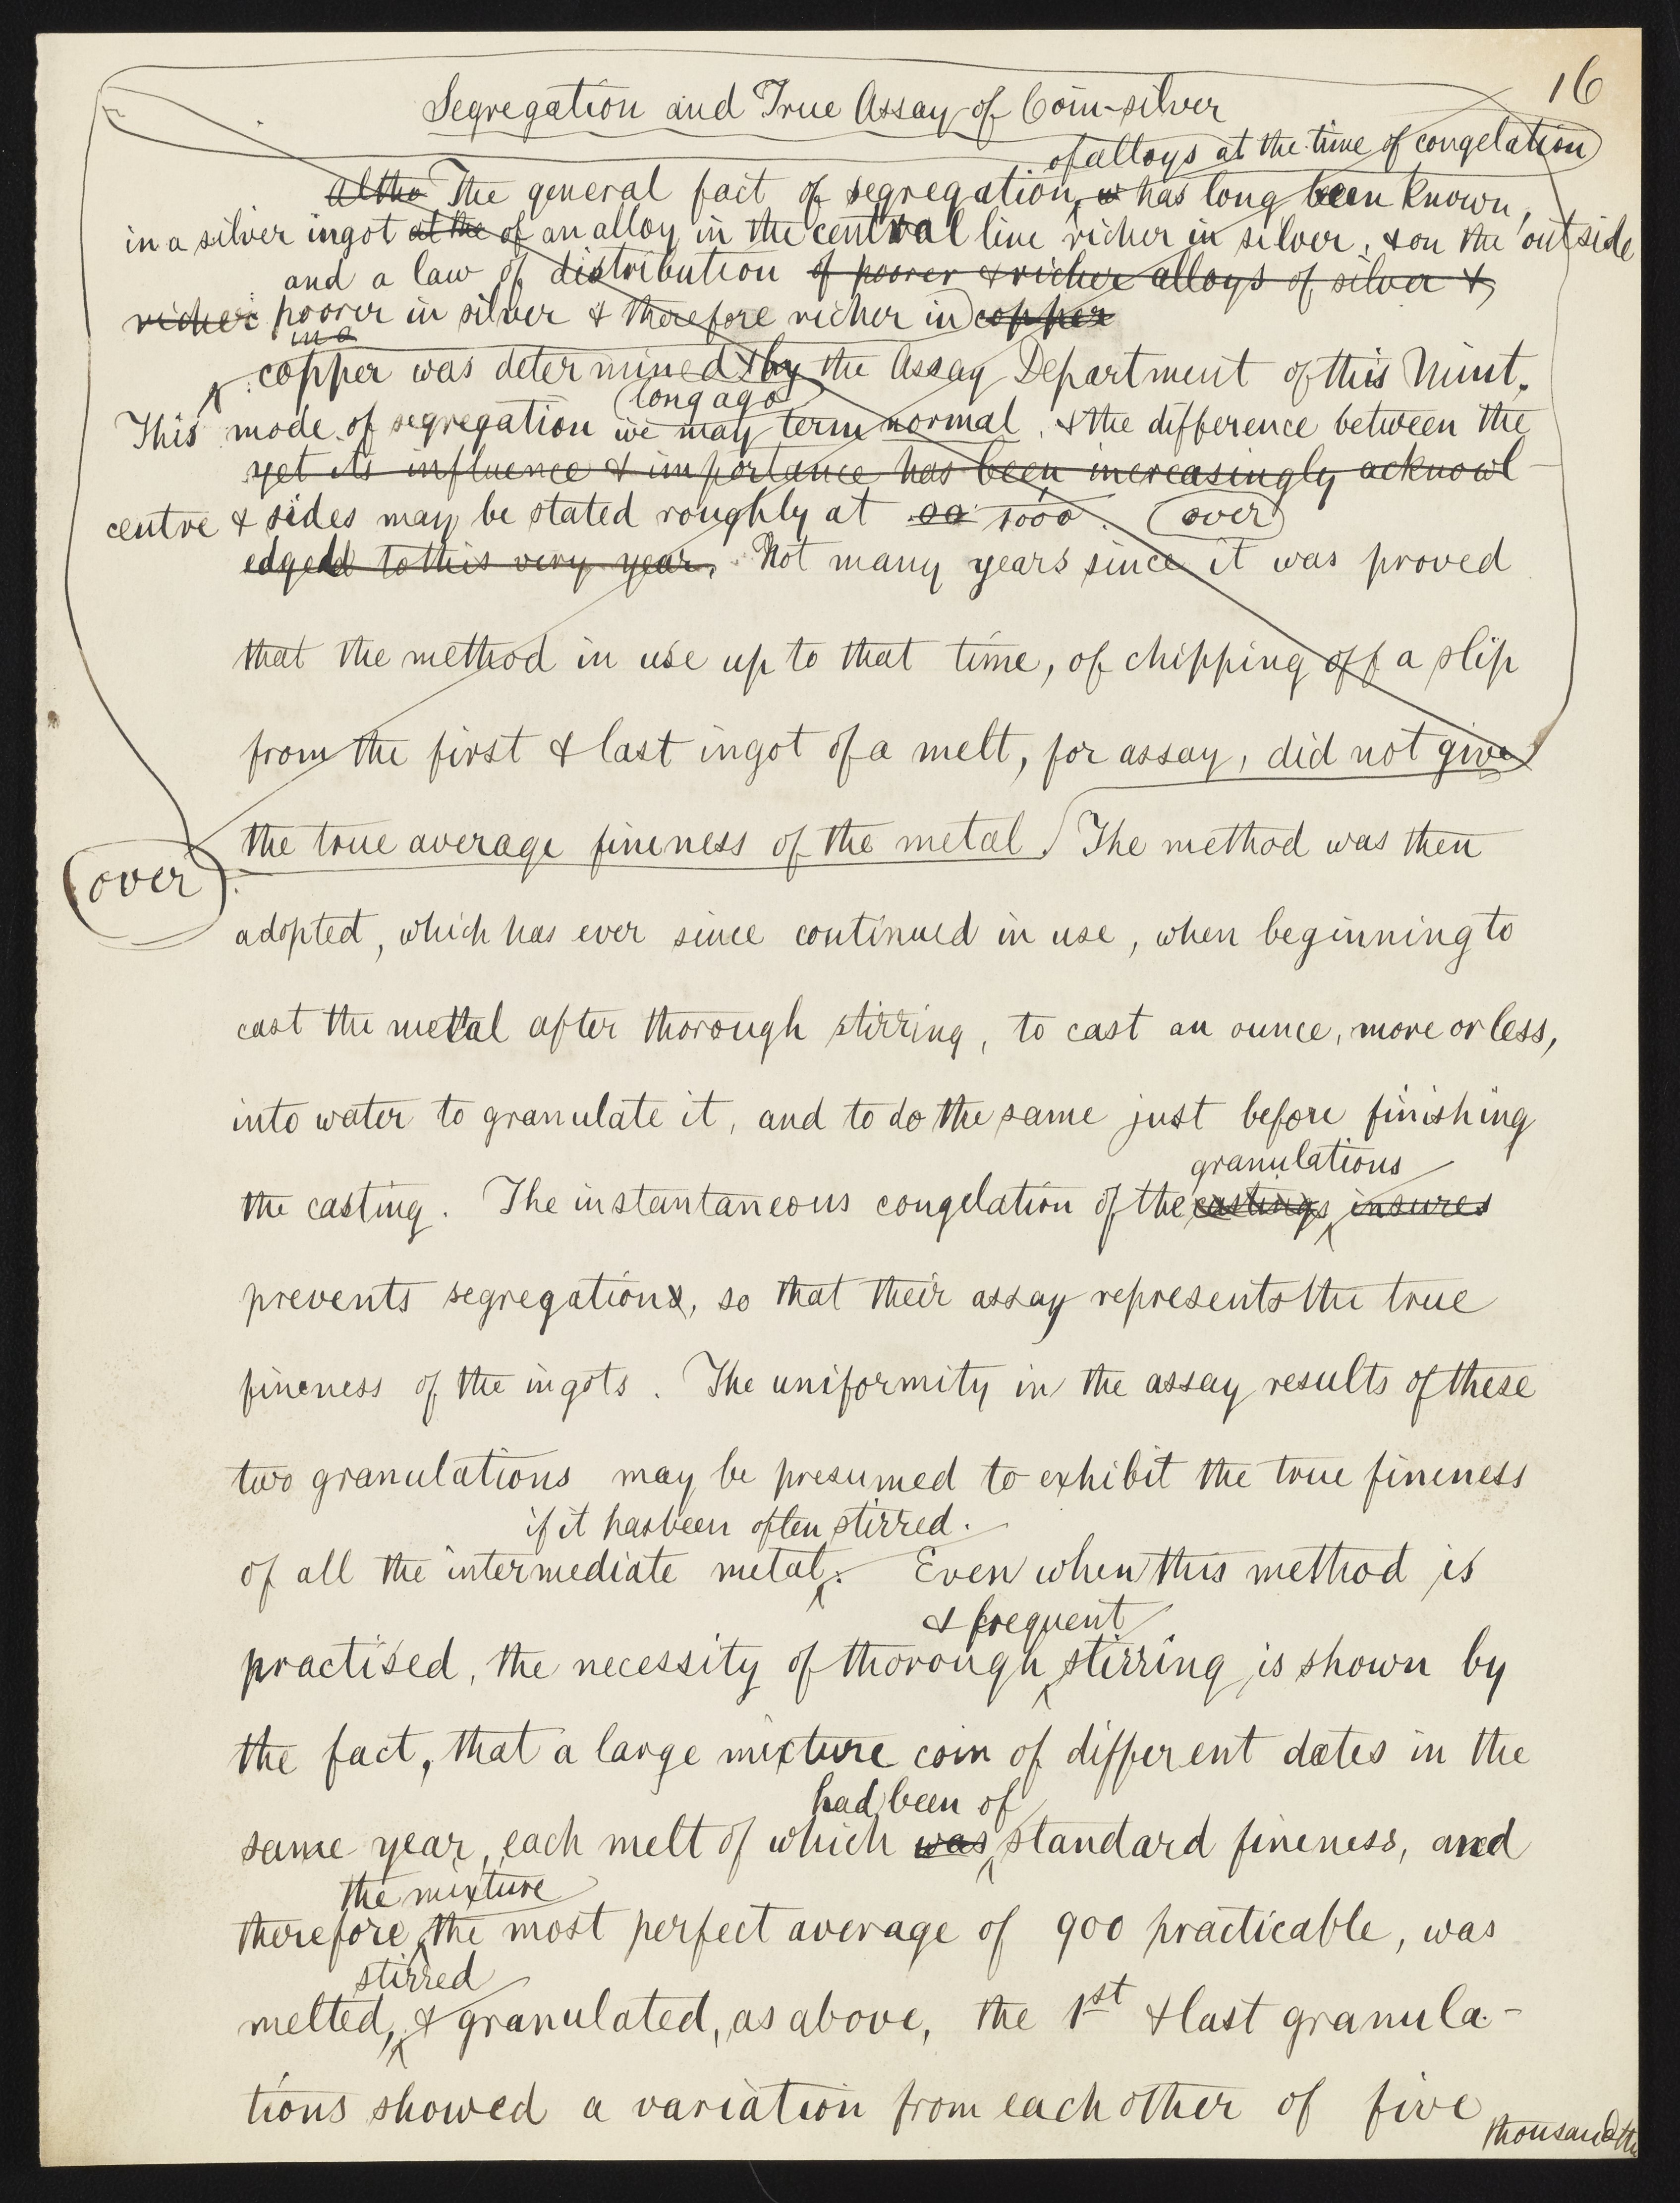 16
Segregation and True Assay of Coin-silver
of alloys at the time of congelation
altho The general fact of segregation, is has long been known,
in a silver ingot at the of an alloy in the central line richer in silver, & on the outside
and a law of distribution of poorer & richer alloys of silver &
richer poorer in silver & therefore richer in copper
in a
copper was determined by the Assay Department of this Mint.
long ago
This mode of segregation we may term normal, & the difference between the
yet its influence & importance has been increasingly acknowl
centre & sides may be stated roughly at 1000. over
edged to this very year. Not many years since it was proved
that the method in use up to that time, of chipping off a slip
from the first & last ingot of a melt, for assay, did not give
the true average fineness of the metal. The method was then
over
adopted, which has ever since continued in use, when beginning to
cast the metal after thorough stirring, to cast an ounce, more or less,
into water to granulate it, and to do the same just before finishing
granulations
the casting. The instantaneous congelation of the castings insures
prevents segregation, so that their assay represents the true
fineness of the ingots. The uniformity in the assay results of these
two granulations may be presumed to exhibit the true fineness
if it has been often stirred.
of all the intermediate metal. Even when this method is
& frequent
practised, the necessity of thorough stirring is shown by
the fact, that a large mixture coin of different dates in the
had been of
same year, each melt of which was standard fineness, and
the mixture
therefore the most perfect average of 900 practicable, was
stirred
melted, & granulated, as above, the 1st & last granula-
tions showed a variation from each other of five
thousandths